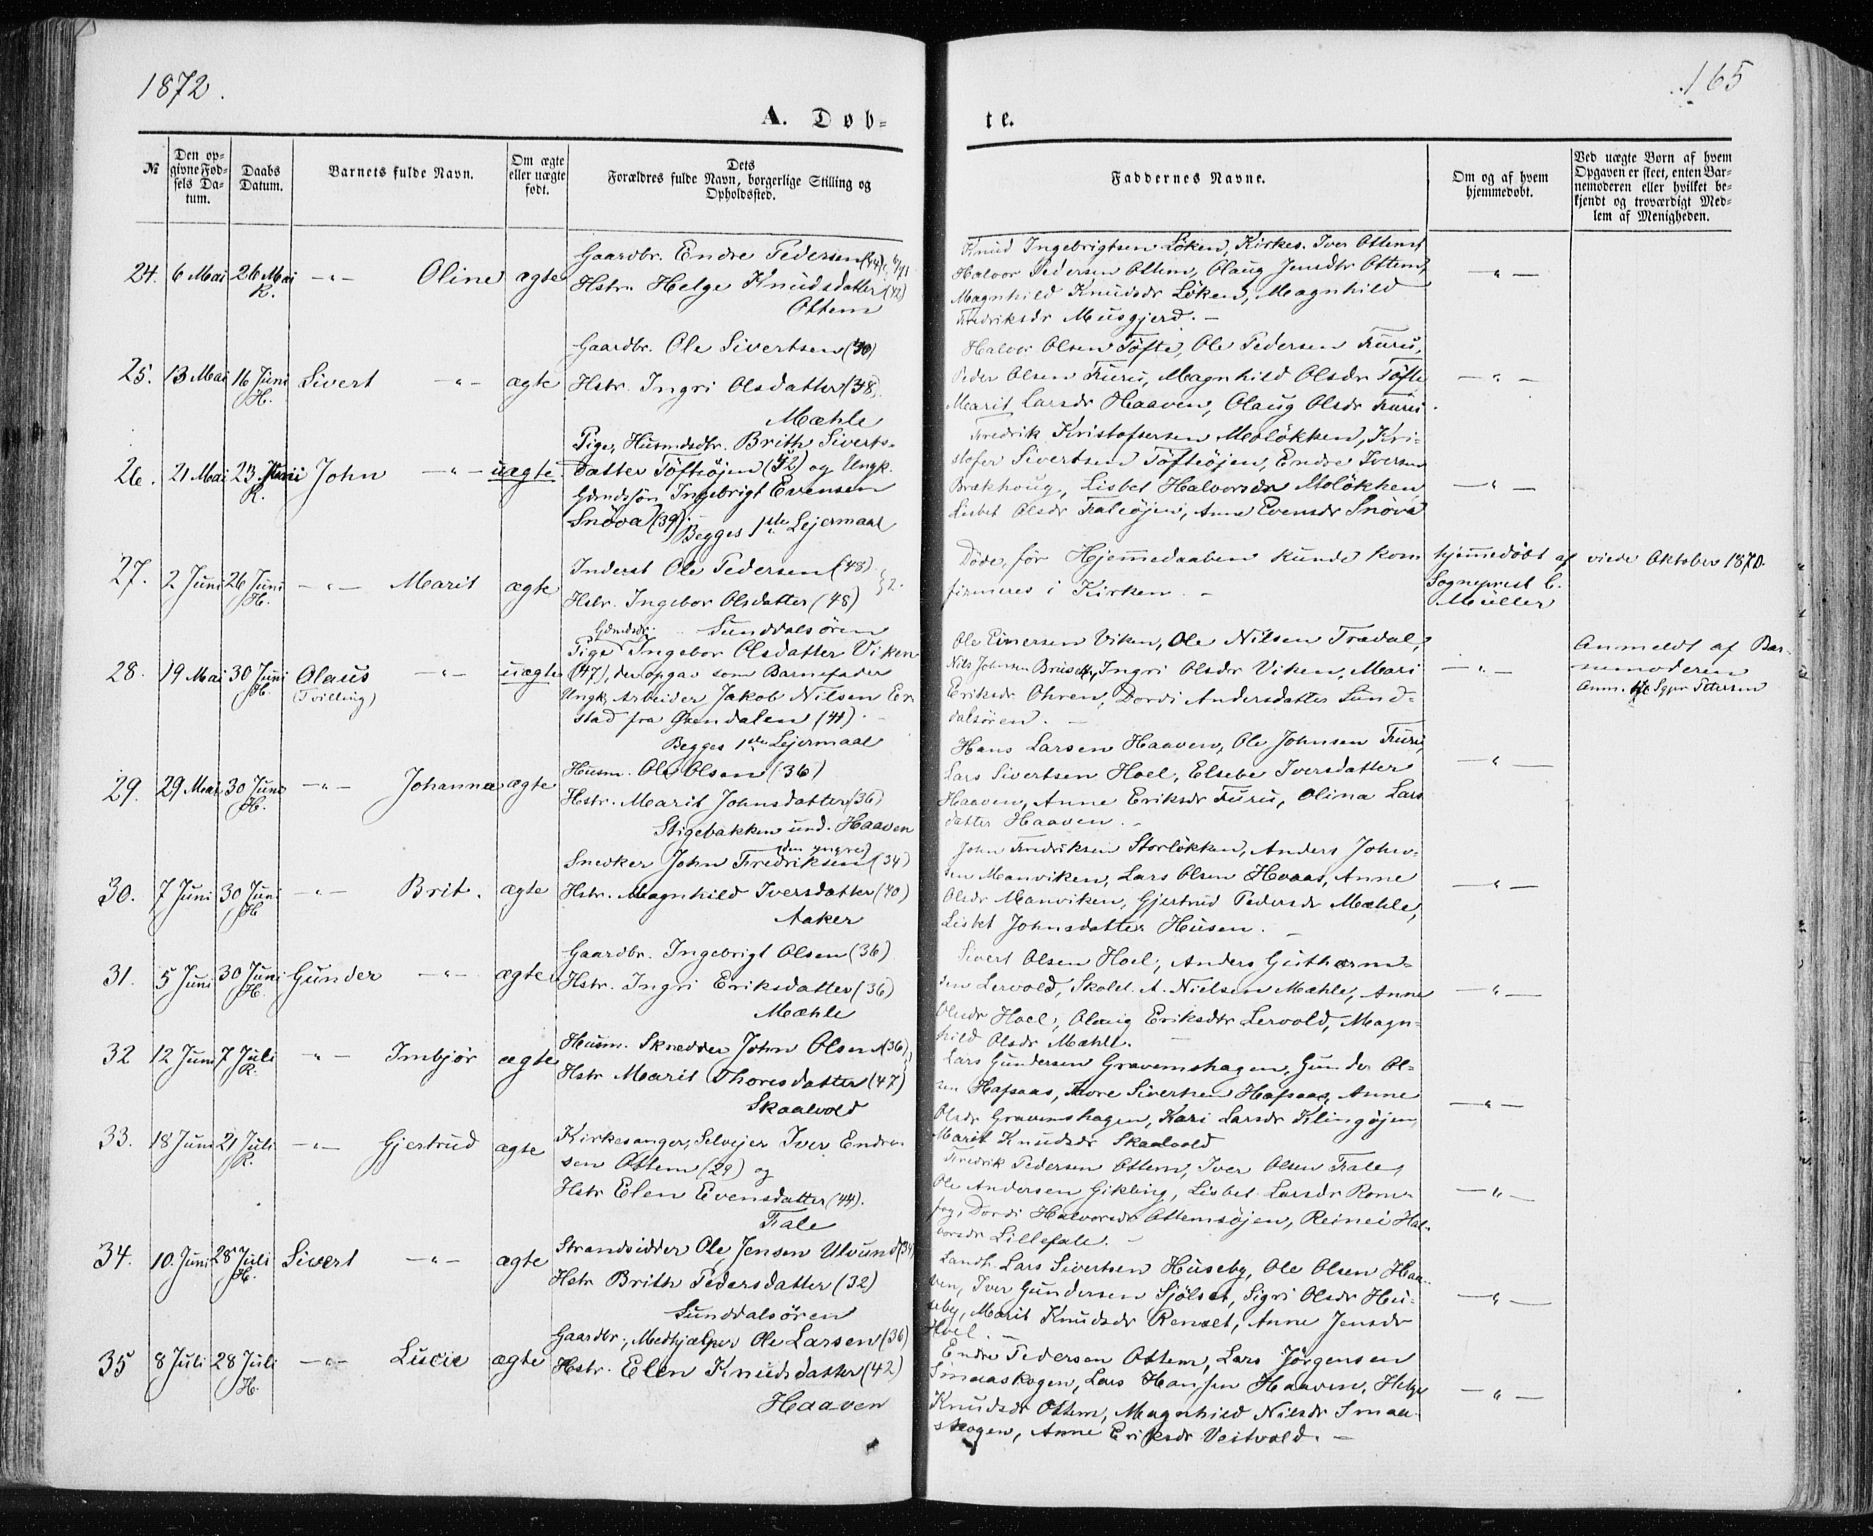 1872.
165
A. Døb-
te.
№
Den op-
givne Fød-
sels Da-
tum.
Daabs
Datum.
Barnets fulde Navn.
Om ægte
eller uægte
født.
Dets
Forældres fulde Navn, borgerlige Stilling og
Opholdssted.
Faddernes Navne.
Om og af hvem
hjemmedøbt.
Ved uægte Børn af hvem
Opgaven er skeet, enten Bar-
nemoderen eller hvilket be-
kjendt og troværdigt Med-
lem af Menigheden.
24. 6 Mai 26 Mai K. -"- Oline ægte
Gaardbr. Endre Pedersen
Hstr. Helge Knudsdatter (42)
Ottem
Knud Ingebrigtsen Løken, Kirkes. Iver Ottem,
Halvor Pedersen Ottem, Olaug Jensdtr Ottem,
Magnhild Knudsdr Løken, Magnhild
Fredriksdr Musgjerd. -
-"-
25. 13 Mai 16 Juni H. Sivert -"- ægte
Gaardbr. Ole Sivertsen (30)
Hstr. Ingri Olsdatter (38)
Mæhle
Halvor Olsen Tøfte, Ole Pedersen Furu,
Peder Olsen Furu, Magnhild Olsdr Tøfte
Marit Larsdr Haaven, Olaug Olsdr Furu.
-"-
26. 21 Mai 23 Juni K. John -"- uægte
Pige, Husmdsdtr. Brith Siverts-
datter Tøftiøjen (52) og Ungk.
Gmdssøn Ingebrigt Evensen
Snøva (39). -
Begges 1ste Lejermaal
Fredrik Kristofersen Moløkken, Kri-
stofer Sivertsen Tøftiøjen, Endre Iversen
Brækhoug, Lisbet Halvorsdr Moløkken
Lisbet Olsdr Faleøjen, Anne Evensdr Snøva
-"-
27. 2 Juni 26 Juni H. -"- Marit ægte
Inderst Ole Pedersen (48)
Hstr. Ingebor Olsdatter (48) }2.
Sunddalsøren
Døde, før Hjemmedaaben kunde kon
firmeres i Kirken. -
hjemmedøbt af
Sogneprest C.
Müller
viede Oktober 1870.
28. 19 Mai 30 Juni H. Olaus -"- uægte
(Tvilling)
Gmdsdr.
Pige Ingebor Olsdatter Viken
(47), der opgav som Barnefader
Ungk. Arbeider Jakob Nilsen Er
stad fra Øxendalen (41). -
Begges 1ste Lejermaal
Ole Einersen Viken, Ole Nilsen Tradal,
Nils Johnsen Brusett, Ingri Olsdr Viken, Mari
Eriksdr Ohren, Dordi Andersdatter Sund-
dalsøren. -
-"-
Anmeldt af Bar-
nemoderen
Anm. Sgpr Petersen
29. 29 Mai 30 Juni H. -"- Johanna ægte
Husm. Ole Olsen (36)
Hstr. Marit Johnsdatter (36)
Stigebakken und. Haaven
Hans Larsen Haaven, Ole Johnsen Furu,
Lars Sivertsen Hoel, Elsebe Iversdatter
Haaven, Anne Eriksdr Furu, Olina Lars
datter Haaven. -
-"-
30. 7 Juni 30 Juni H -"- Brit. ægte
(den yngre)
Snedker John Fredriksen (34)
Hstr. Magnhild Iversdatter (40)
Aaker
John Fredriksen Storløkken, Anders John-
sen Manviken, Lars Olsen Hvaas, Anne
Olsdr Manviken, Gjertrud Pedersdr Mæhle,
Lisbet Johnsdatter Husen. -
-"-
31. 5 Juni 30 Juni H. Gunder -"- ægte
Gaardbr. Ingebrigt Olsen (36)
Hstr. Ingri Eriksdatter (36)
Mæhle
Sivert Olsen Hoel, Anders Guthorm-
sen Lervold, Skolel. A. Nielsen Mæhle, Anne
Olsdr Hoel, Olaug Eriksdtr Lervold, Magn-
hild Olsdr Mæhle. -
-"-
32 12 Juni 7 Juli K. -"- Imbjør ægte
Husm. Skrædder John Olsen (36)
Hstr Marit Thoresdatter (47)
Skaalvold
Lars Gundersen Gravemshagen, Gunder Ol-
sen Hafsaas, Tore Sivertsen Hafsaas, Anne
Olsdr Gravemshagen, Kari Larsdr Klingøjen,
Marit Knudsdr Skaalvold
-"-
33. 18 Juni 21 Juli K. -"- Gjertrud ægte
Kirkesanger, Selvejer Iver Endre-
sen Ottem (29) og
Hstr Elen Evensdatter (44).
Fale
Fredrik Pedersen Ottem, Iver Olsen Fale,
Ole Andersen Gikling, Lisbet Larsdr Rom-
fog, Dordi Halvorsdr Ottemsøjen, Reinei Hal-
vorsdr Lillefale. -
-"-
34. 10. Juni 28 Juli H. Sivert -"- ægte
Strandsidder Ole Jensen Ulvund (34)
Hstr Brith Pedersdatter (32)
Sunddalsøren
Landh. Lars Sivertsen Huseby, Ole Olsen Haa-
ven, Iver Gundersen Sjølset, Sigri Olsdr Hu-
seby, Marit Knudsdr Renset, Anne Jensdr
Hoel. -
-"-
35 8 Juli 28 Juli H. -"- Lucie ægte
Gaardbr., Medhjælper Ole Larsen (36)
Hstr. Elen Knudsdatter (42)
Haaven
Endre Pedersen Ottem, Lars Jørgensen
Smaaskogen, Lars Hansen Haaven, Helge
Knudsdr Ottem, Magnhild Nilsdr Smaa-
skogen, Anne Eriksdr Veitvold. -
-"-